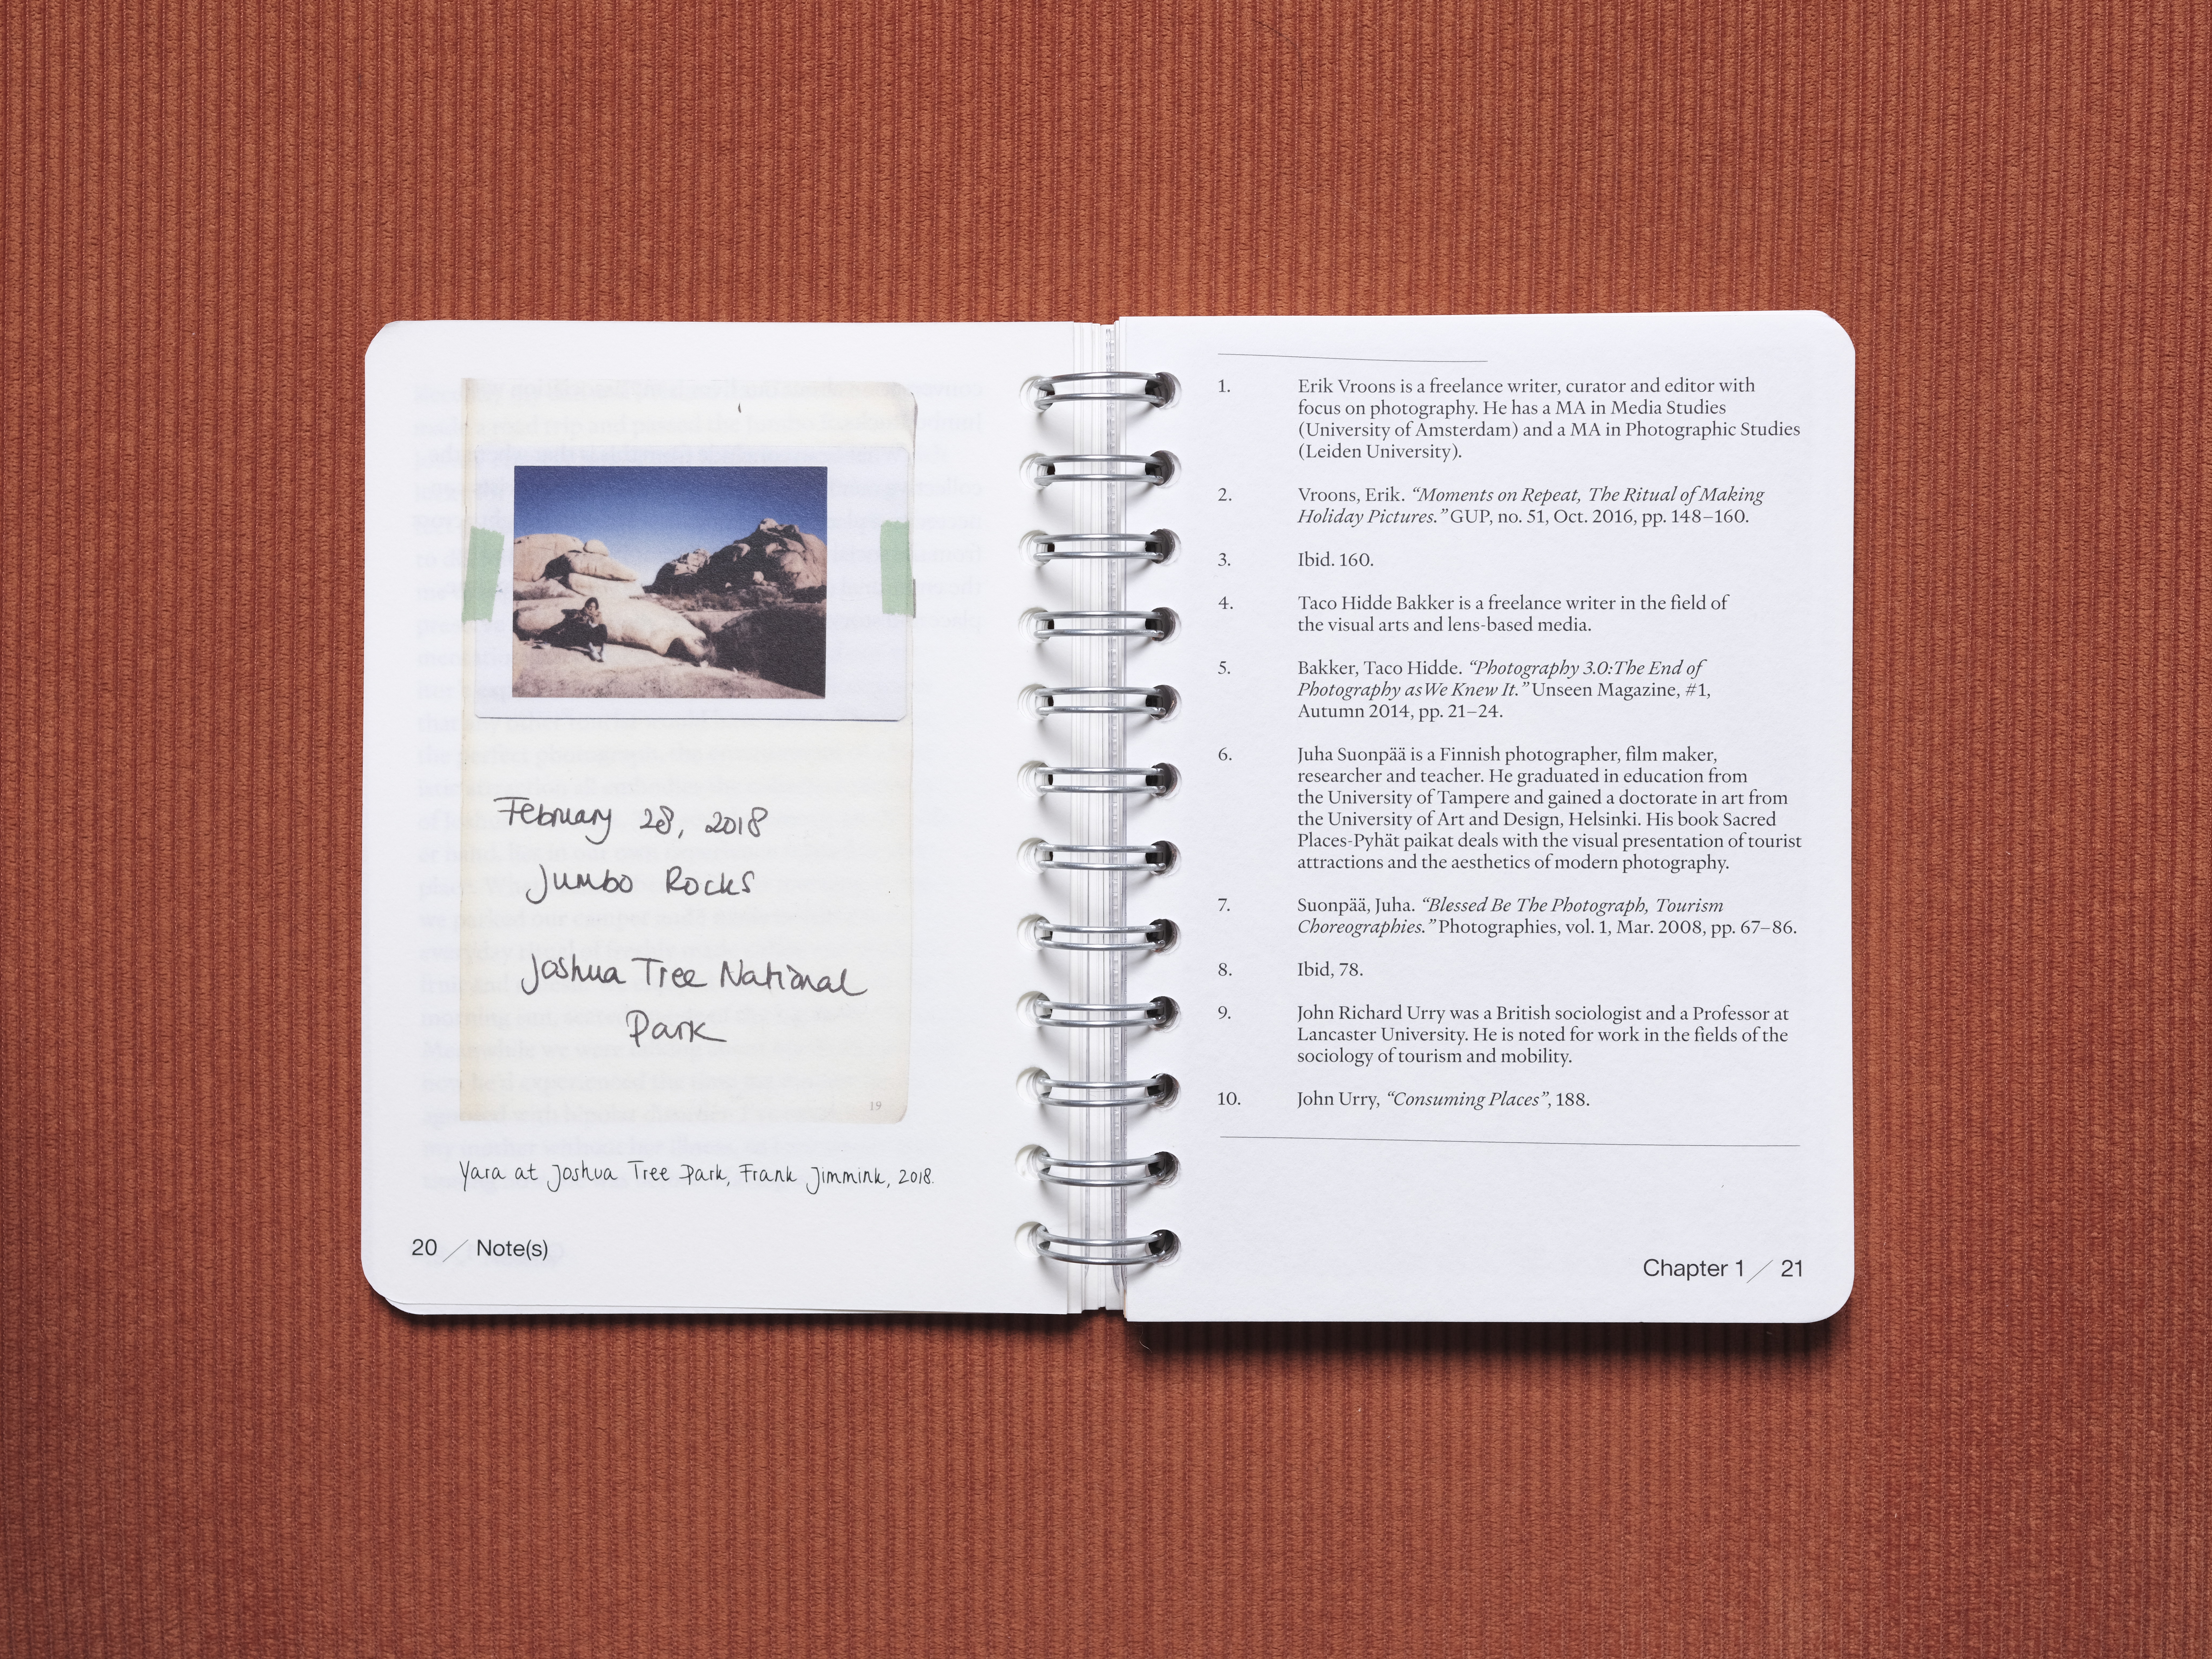 February 28, 2018
Jumbo Rocks
Joshua Tree National
Park
19
Yara at Joshua Tree Park, Frank Jimmink, 2018.
20 / Note(s)
1. Erik Vroons is a freelance writer, curator and editor with
focus on photography. He has a MA in Media Studies
(University of Amsterdam) and a MA in Photographic Studies
(Leiden University).
2. Vroons, Erik. “Moments on Repeat, The Ritual of Making
Holiday Pictures.” GUP, no. 51, Oct. 2016, pp. 148–160.
3. Ibid. 160.
4. Taco Hidde Bakker is a freelance writer in the field of
the visual arts and lens-based media.
5. Bakker, Taco Hidde. “Photography 3.0:The End of
Photography as We Knew It.” Unseen Magazine, #1,
Autumn 2014, pp. 21–24.
6. Juha Suonpää is a Finnish photographer, film maker,
researcher and teacher. He graduated in education from
the University of Tampere and gained a doctorate in art from
the University of Art and Design, Helsinki. His book Sacred
Places-Pyhät paikat deals with the visual presentation of tourist
attractions and the aesthetics of modern photography.
7. Suonpää, Juha. “Blessed Be The Photograph, Tourism
Choreographies.” Photographies, vol. 1, Mar. 2008, pp. 67–86.
8. Ibid, 78.
9. John Richard Urry was a British sociologist and a Professor at
Lancaster University. He is noted for work in the fields of the
sociology of tourism and mobility.
10. John Urry, “Consuming Places”, 188.
Chapter 1 / 21